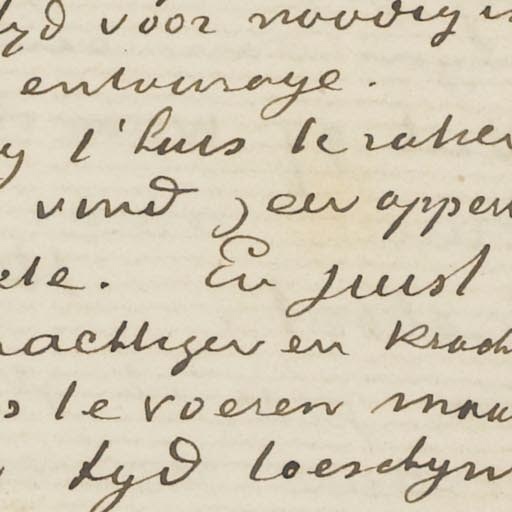 tyd voor noodig is
entourage.
y t'huis te raken
vind, een appen
ele. En juist
achtiger en krach
s te voeren maa
tyd toeschyn